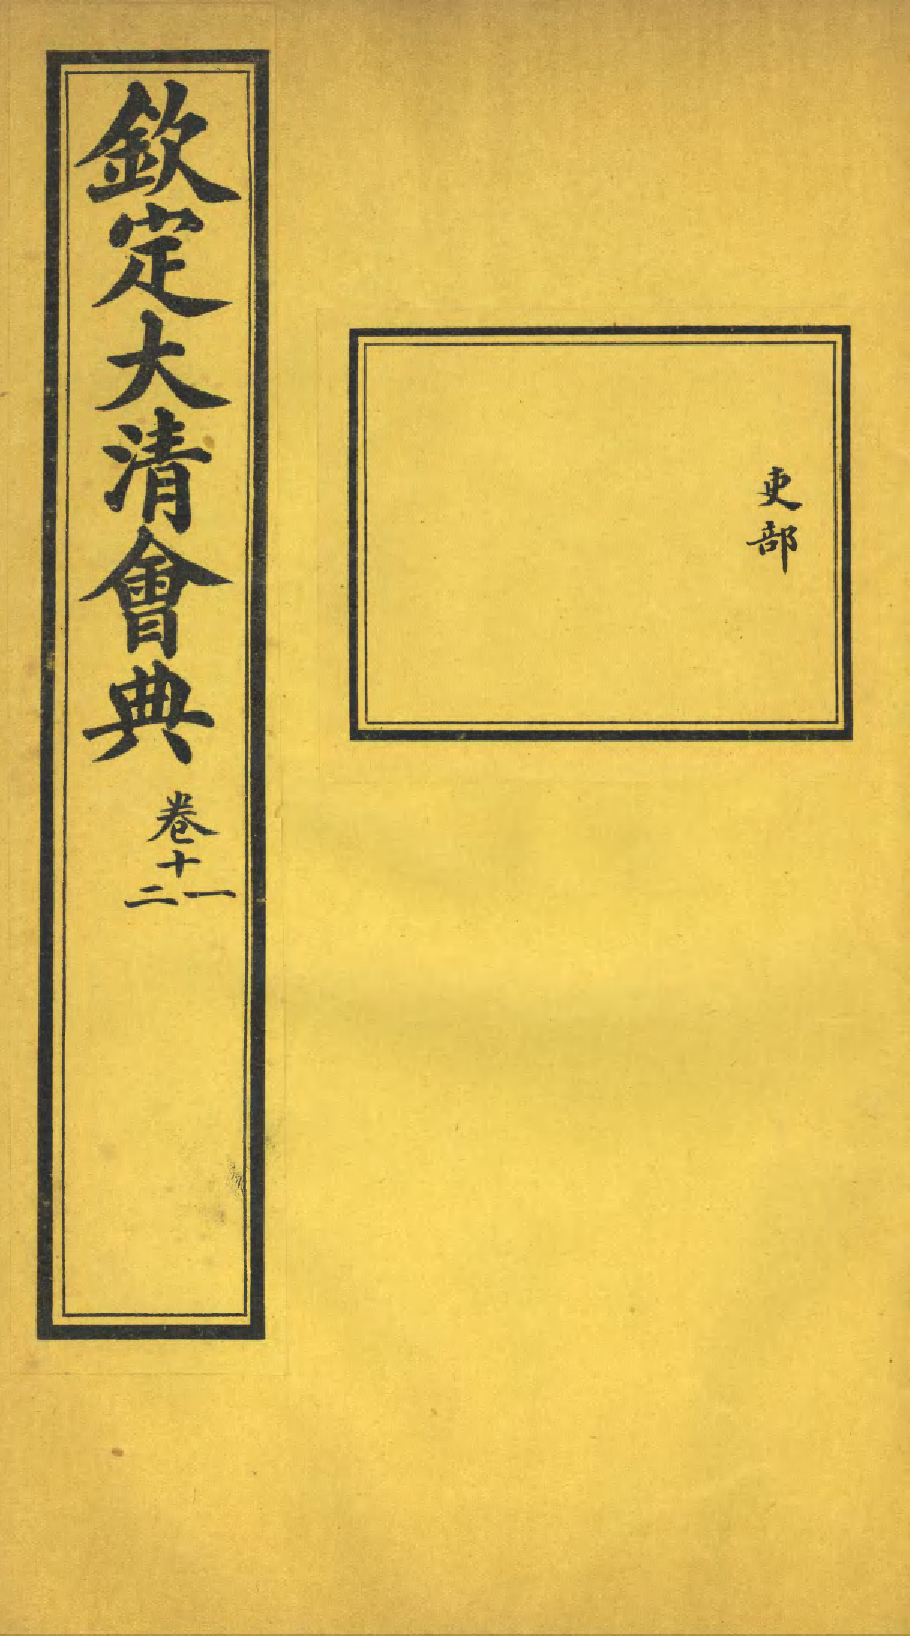 吏部
欽定大清會典
卷十一
二